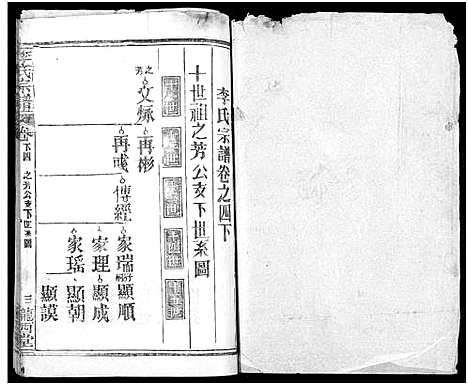 李氏宗譜卷之四下
十世祖之芳公支下世系圖
之芳
文
再彬
再彧
傳經
家瑞
家理
家瑤
顯順
顯成
顯朝
顯謨
李氏宗譜
卷下四
之芳公支下世系圖
三
隴西堂